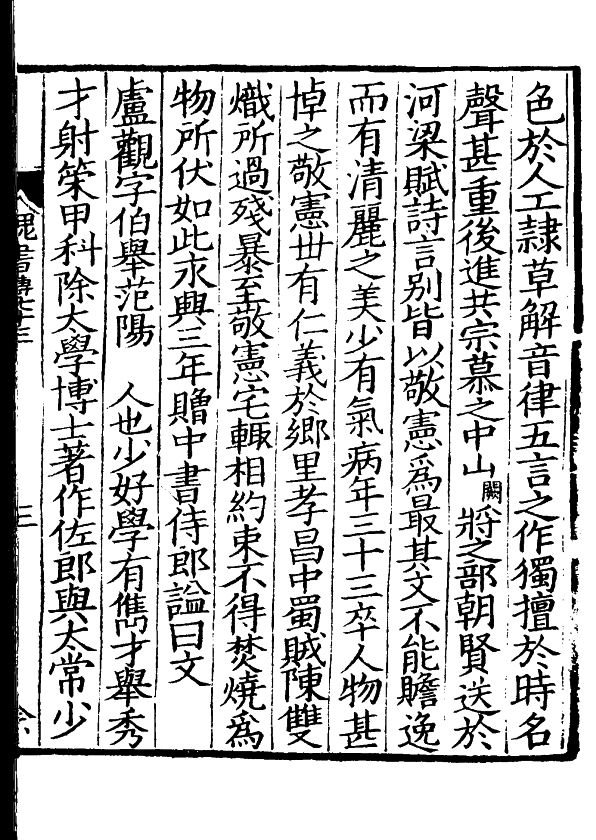 色於人工隷草解音律五言之作獨擅於時名
聲甚重後進共宗慕之中山闕將之部朝賢送於
河梁賦詩言别皆以敬憲爲最其文不能贍逸
而有清麗之美少有氣病年三十三卒人物甚
悼之敬憲丗有仁義於鄉里孝昌中蜀賊陳雙
熾所過殘暴至敬憲宅輙相約束不得焚燒爲
物所伏如此永興三年贈中書侍郎謚曰文
盧觀字伯舉范陽 人也少好學有儁才舉秀
才射策甲科除太學博士著作佐郎與太常少
三